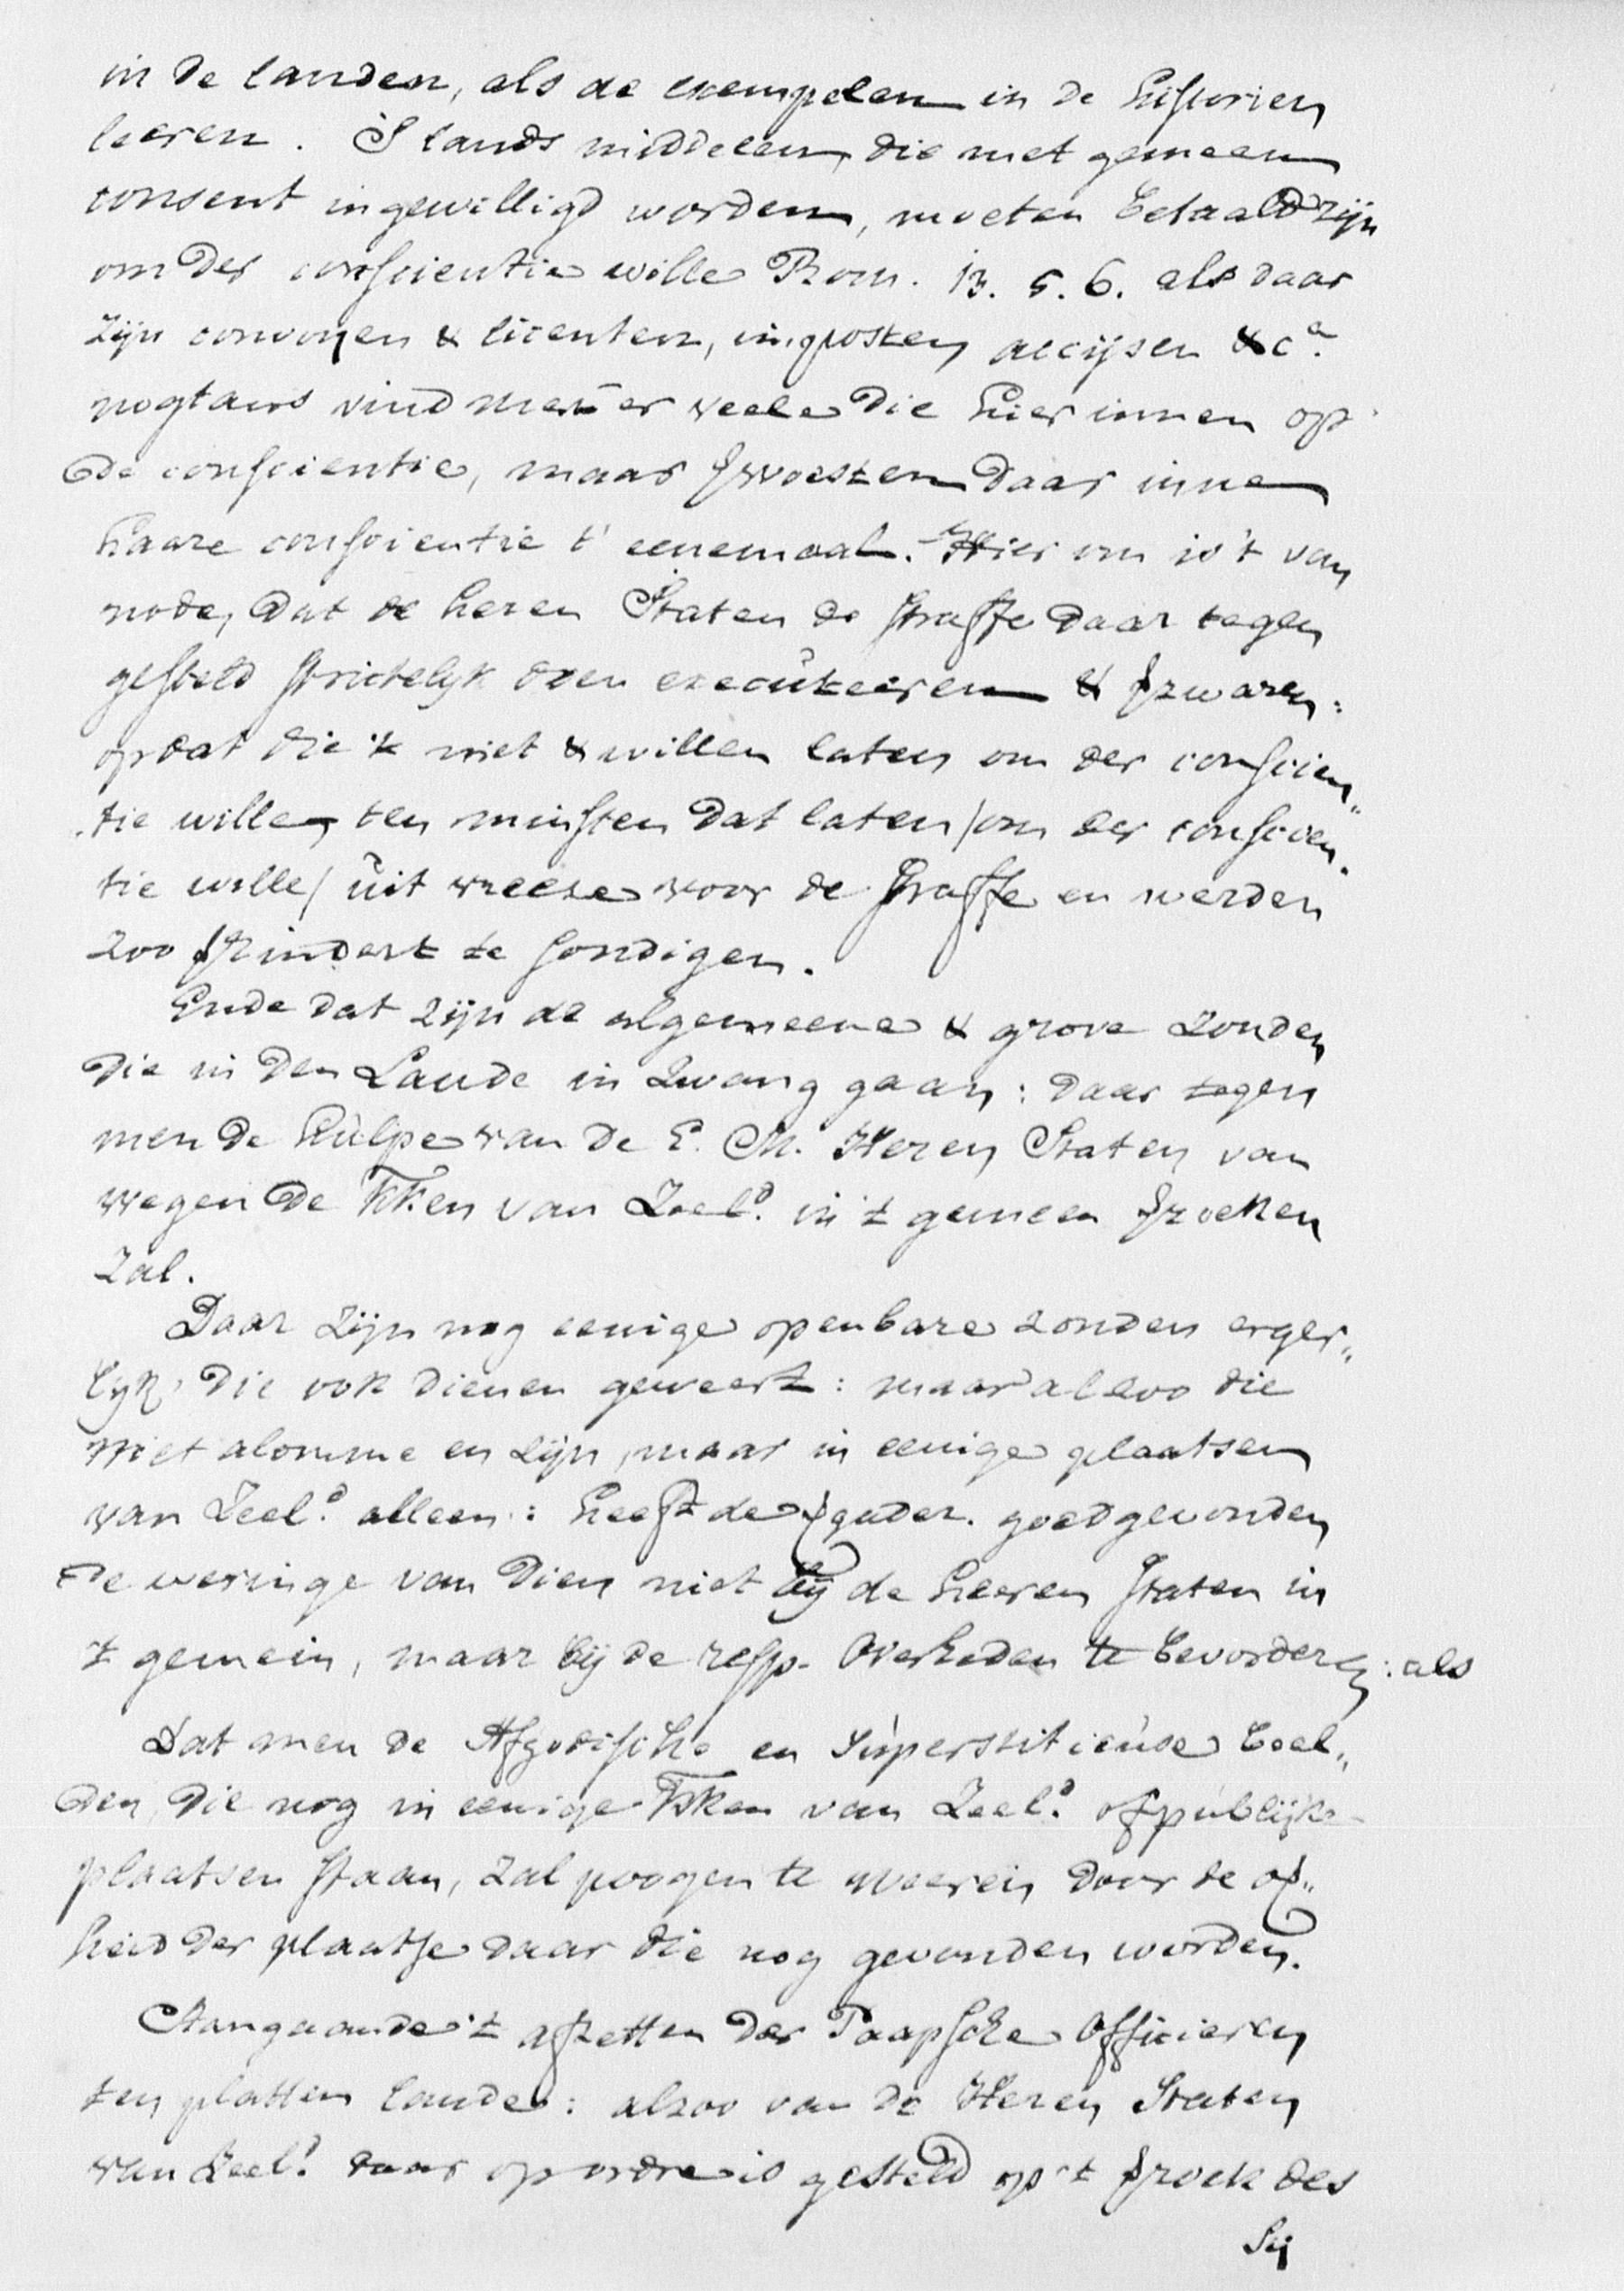 in de landen, als de exempelen in de historien
leeren. S lands middelen, die met gemeen
consent ingewilligd worden, moeten betaald zijn
om der conscientie wille Rom. 13. 5. 6. als daar
zijn convoyen & licenten, imposten accijsen &cª.
nogtans vind men er veele die hier innen op
de conscientie, maar verwoesten daar inne
haare conscientie t' eenemaal. Hier om is 't van
node, dat de heren Staten de straffe daar tegen
gesteld strictelyk doen executeeren & verzwaren:
op dat die 't niet & willen laten om der conscien„
tie wille, ten minsten dat laten /om der conscien„
tie wille/ uit vreese voor de straffe en werden
zoo verhindert te sondigen.
Ende dat zijn de algemeene & grove zonden
die in den Lande in zwang gaan: daar tegen
men de hulpe van de E. M. Heren Staten van
wegen de KK.en van Zeelᵈ. in 't gemeen verzoeken
zal.
Daar zijn nog eenige openbare zonden erger„
lyk, die ook dienen geweert: maar alzoo die
niet alomme en zijn, maar in eenige plaatsen
van Zeelᵈ. alleen: heeft de vergader. goedgevonden
de weringe van dien niet bij de heeren Staten in
't gemein, maar bij de resp. Overheden te bevorderen: als
Dat men de Afgodische en superstitieuse beel„
den, die nog in eenige KKen van Zeelᵈ. of publijke
plaatsen staan, zal poogen te weeren door de over„
heid der plaatse daar die nog gevonden worden.
Aangaande 't afzetten der Paapsche Officieren
ten platten lande: alzoo van de Heren Staten
van Zeelᵈ. daar op ordre is gesteld op 't verzoek des